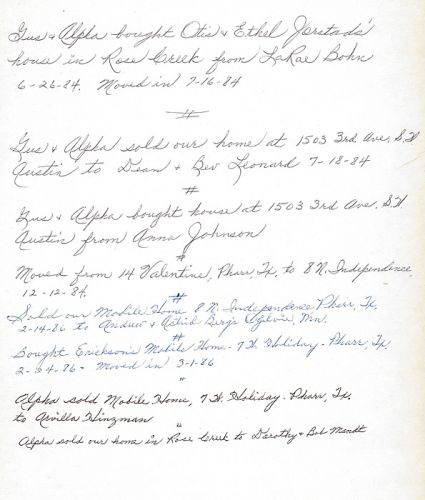 Gus & Alpha bought Otis & Ethel Jorstad's
house in Rose Creek from LaRae Bohn
6-26-84. Moved in 7-16-84
#
Gus & Alpha sold our home at 1503 3rd Ave. S.W
Austin to Dean & Bev Leonard 7-18-84
#
Gus & Alpha bought house at 1503 3rd Ave. S.W
Austin from Anna Johnson
#
Moved from 14 Valentine, Pharr, Tx. to 8 N. Independence
12-12-84.
#
Sold our Mobile Home 8 N. Independence Pharr, Tx,
2-14-86 to & Astrid Berg's Ogilvie, Mn.
#
Bought Erickson's Mobile Home - 7 W. Holiday - Pharr, Tx,
2-24-86 - Moved in 3-1-86
"
Alpha sold Mobile Home, 7 W. Holiday - Pharr, Tx.
to Arvilla Hinzman
"
Alpha sold our home in Rose Creek to Dorothy & Bob Mandt